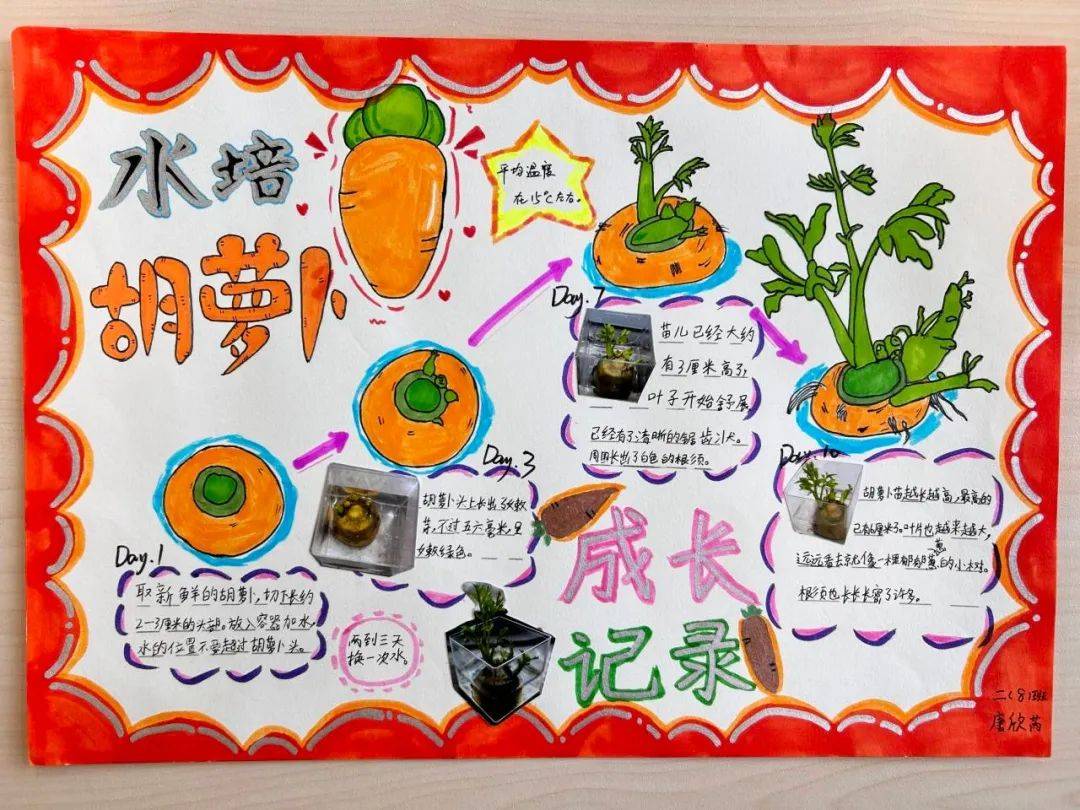 水培
胡萝卜
平均温度
在15℃左右。
Day.1
取新鲜的胡萝卜,切下长约
2-3厘米的大胡。放入容器加水,
水的位置不要超过胡萝卜头。
Day.3
胡萝卜头上长出了嫩嫩
芽,不过五六毫米,呈
嫩绿色。
Day.7
苗儿已经大约
有3厘米高了,
叶子开始舒展,
已经有了清晰的锯齿状。
周围长出了白色的根须。
Day.10
胡萝卜苗越长越高,最高的
已有6厘米了。叶片也越来越大,
远远看去就像一棵郁郁葱葱的小树。
根须也长长长密了许多。
两到三天
换一次水。
成长
记录
二(8)班
唐欣芮